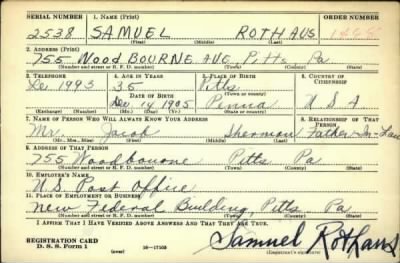 SERIAL NUMBER 1. NAME (Print) ORDER NUMBER
2538 SAMUEL ROTHAUS
(First) (Middle) (Last)
2. ADDRESS (Print)
755 Wood BOURNE AVE Pitts Pa
(Number and street or R. F. D. number) (Town) (County) (State)
3. TELEPHONE 4. AGE IN YEARS 5. PLACE OF BIRTH 6. COUNTRY OF CITIZENSHIP
1993 35 Pitts
DATE OF BIRTH (Town or county)
14 1905 Penna U S A
(Exchange) (Number) (Mo.) (Day) (Yr.) (State or country)
7. NAME OF PERSON WHO WILL ALWAYS KNOW YOUR ADDRESS 8. RELATIONSHIP OF THAT PERSON
Mr. Jacob Sherman Father-In-Law
(Mr., Mrs., Miss) (First) (Middle) (Last)
9. ADDRESS OF THAT PERSON
755 Woodbourne Pitts Pa
(Number and street or R. F. D. number) (Town) (County) (State)
10. EMPLOYER'S NAME
U.S. Post Office
11. PLACE OF EMPLOYMENT OR BUSINESS
New Federal Building, Pitts Pa
(Number and street or R. F. D. number) (Town) (County) (State)
I AFFIRM THAT I HAVE VERIFIED ABOVE ANSWERS AND THAT THEY ARE TRUE.
REGISTRATION CARD
D. S. S. Form 1 (over) 16—17105 (Registrant's signature)
Samuel Rothaus